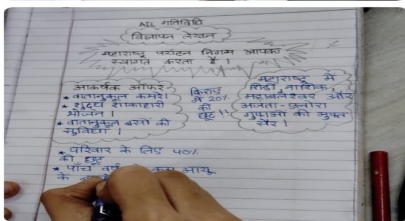 ALL गतिविधि
विज्ञापन लेखन
महाराष्ट्र पर्यटन निगम आपका
स्वागत करता है ।
आकर्षक ऑफर
* वातानुकूल कमरे।
* शुद्ध शाकाहारी
भोजन ।
* वातानुकूल बसों की
सुविधा ।
किराए
में 20%
की
छूट !
महाराष्ट्र में
शिर्डी, नाशिक,
महाबलेश्वर और
अजंता - एलोरा
गुफाओं की मुफ्त
सैर ।
* परिवार के लिए 40%
की छूट
* पाँच वर्ष आयु
के